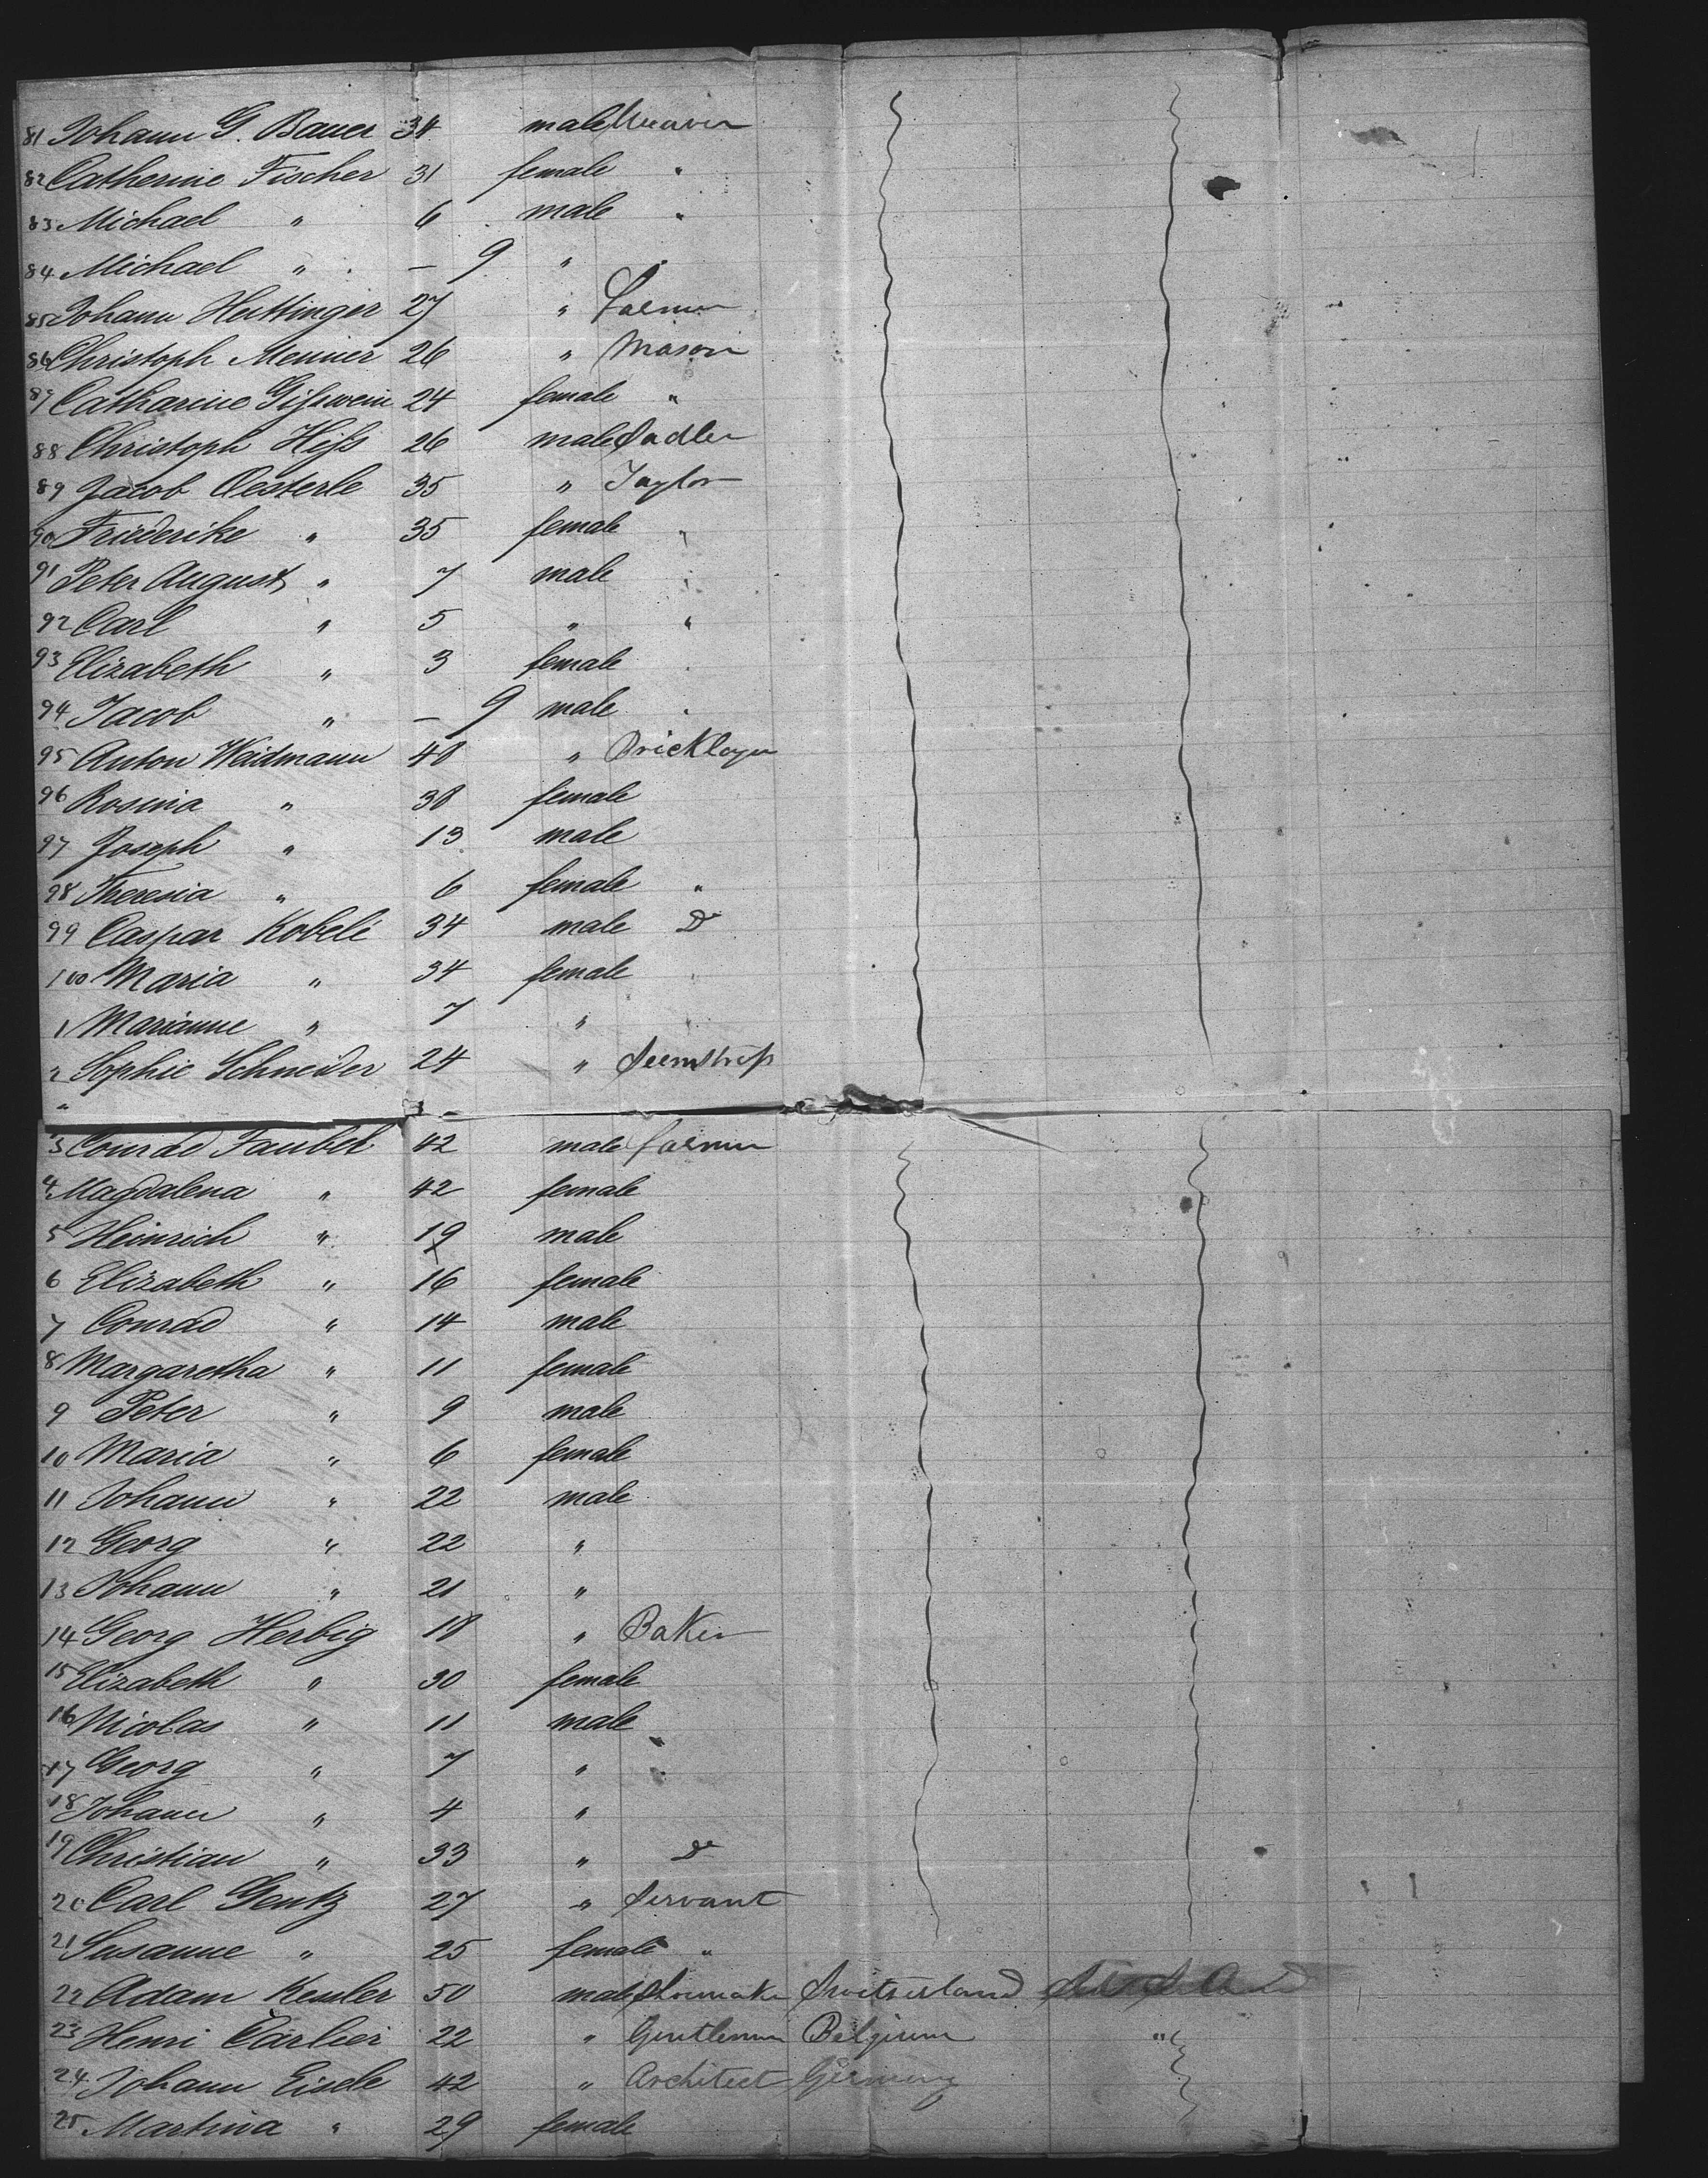 81 Johann G. Bauer 34 male Weaver
82 Catherine Fischer 31 female "
83 Michael " 6 male "
84 Michael " — 9 "
85 Johann Huttinger 27 " Farmer
86 Christoph Menner 26 " Mason
87 Catharine Gißwein 24 female "
88 Christoph Hiß 26 male Sadler
89 Jacob Oesterle 35 " Taylor
90 Friederike " 35 female "
91 Peter August " 7 male "
92 Carl " 5 " "
93 Elizabeth " 3 female
94 Jacob " — 9 male
95 Anton Waidmann 48 " Bricklayer
96 Rosina " 38 female
97 Joseph " 13 male
98 Theresia " 6 female "
99 Caspar Kobele 34 male Do
100 Maria " 34 female
1 Marianne " 7 "
2 Sophie Schneider 24 " Seemstress
3 Conrad Faubel 42 male farmer
4 Magdalena " 42 female
5 Heinrich " 19 male
6 Elizabeth " 16 female
7 Conrad " 14 male
8 Margaretha " 11 female
9 Peter " 9 male
10 Maria " 6 female
11 Johann " 22 male
12 Georg " 22 "
13 Johann " 21 "
14 Georg Herbig 18 " Baker
15 Elizabeth " 30 female
16 Nicolas " 11 male
17 Georg " 7 "
18 Johann " 4 "
19 Christian " 33 " Do
20 Carl Gentz 27 " Servant
21 Susanne " 25 female "
22 Adam Kessler 50 male Shoemaker Switzerland
23 Henri Carlier 22 " Gentleman Belgium "
24 Johann Eisele 42 " Architect Germany
25 Martina " 29 female